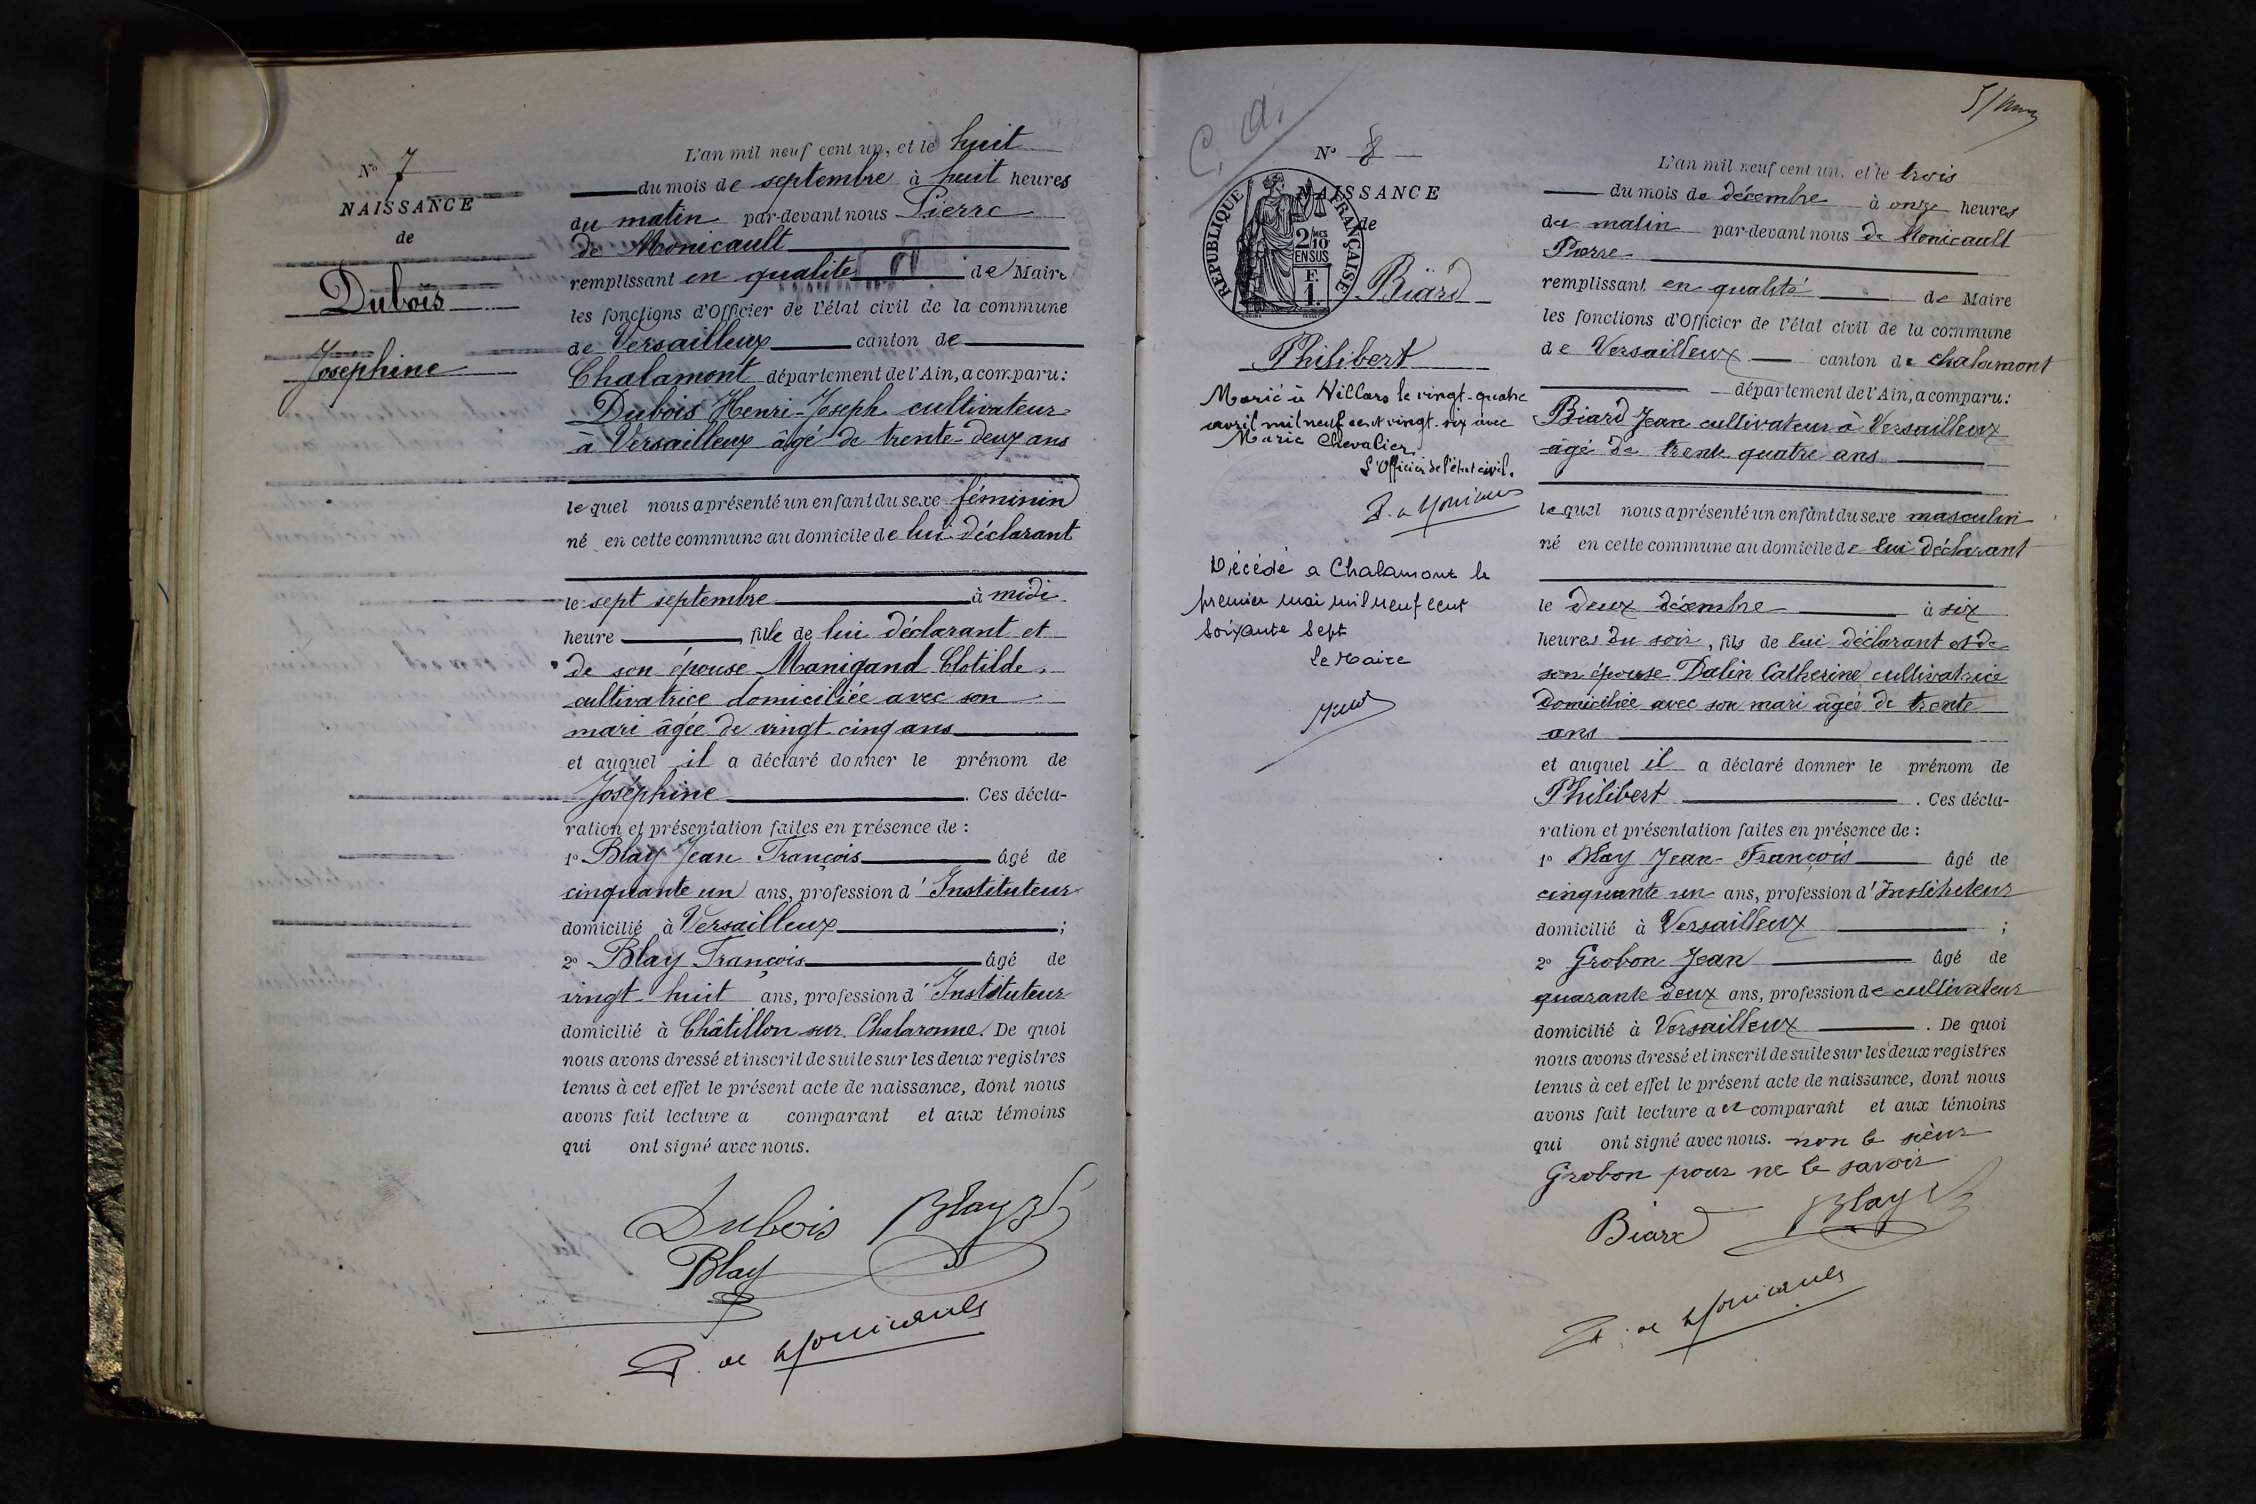 N° 7
NAISSANCE
de
Dubois
Joséphine
L'an mil neuf cent un, et le huit
du mois de septembre à huit heures
du matin par-devant nous Pierre
de Monicault
remplissant en qualité de Maire
les fonctions d'Officier de l'état civil de la commune
de Versailleux canton de
Chalamont département de l'Ain, a comparu :
Dubois Henri-Joseph cultivateur
à Versailleux âgé de trente-deux ans
lequel nous a présenté un enfant du sexe féminin
né en cette commune au domicile de lui déclarant
le sept septembre à midi
heure , fille de lui déclarant et
de son épouse Manigand Clotilde
cultivatrice domiciliée avec son
mari âgée de vingt cinq ans
et auquel il a déclaré donner le prénom de
Joséphine . Ces décla-
ration et présentation faites en présence de :
1° Blay Jean François âgé de
cinquante un ans, profession d'Instituteur
domicilié à Versailleux ;
2° Blay François âgé de
vingt-huit ans, profession d'Instituteur
domicilié à Châtillon sur Chalaronne. De quoi
nous avons dressé et inscrit de suite sur les deux registres
tenus à cet effet le présent acte de naissance, dont nous
avons fait lecture a comparant et aux témoins
qui ont signé avec nous.
Dubois Blay
Blay
P. de Monicault
C. a.
N° 8
NAISSANCE
de
RÉPUBLIQUE FRANÇAISE
2/10 MES
EN SUS
F.
1.
Biard
Philibert
Marié à Villars le vingt-quatre
avril mil neuf cent vingt-six avec
Marie Chevalier
L'Officier de l'état civil.
P. de Monicault
Décédé a Chalamont le
premier mai mil neuf cent
soixante sept
Le Maire
L'an mil neuf cent un, et le trois
du mois de décembre à onze heures
du matin par-devant nous de Monicault
Pierre
remplissant en qualité de Maire
les fonctions d'Officier de l'état civil de la commune
de Versailleux canton de chalamont
département de l'Ain, a comparu :
Biard Jean cultivateur à Versailleux
âgé de trente quatre ans
lequel nous a présenté un enfant du sexe masculin
né en cette commune au domicile de lui déclarant
le deux décembre à six
heures du soir, fils de lui déclarant et de
son épouse Dalin Catherine cultivatrice
domiciliée avec son mari âgée de trente
ans
et auquel il a déclaré donner le prénom de
Philibert . Ces décla-
ration et présentation faites en présence de :
1° Blay Jean-François âgé de
cinquante un ans, profession d'Instituteur
domicilié à Versailleux ;
2° Grobon Jean âgé de
quarante deux ans, profession de cultivateur
domicilié à Versailleux . De quoi
nous avons dressé et inscrit de suite sur les deux registres
tenus à cet effet le présent acte de naissance, dont nous
avons fait lecture au comparant et aux témoins
qui ont signé avec nous. non le sieur
Grobon pour ne le savoir
Biard Blay
P. de Monicault